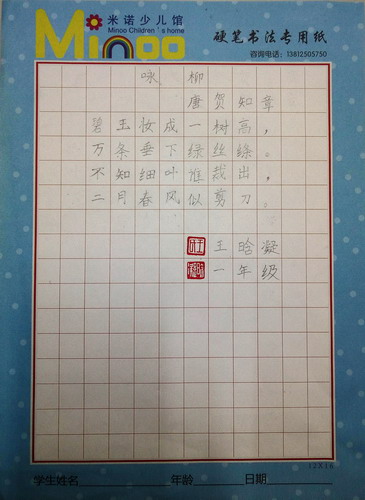 米诺少儿馆
Minoo Children's home
Minoo
硬笔书法专用纸
咨询电话：13812505750
咏 柳
唐 贺知章
碧玉妆成一树高，
万条垂下绿丝绦。
不知细叶谁裁出，
二月春风似剪刀。
王晗凝
一年级
12X16
学生姓名 年龄 日期